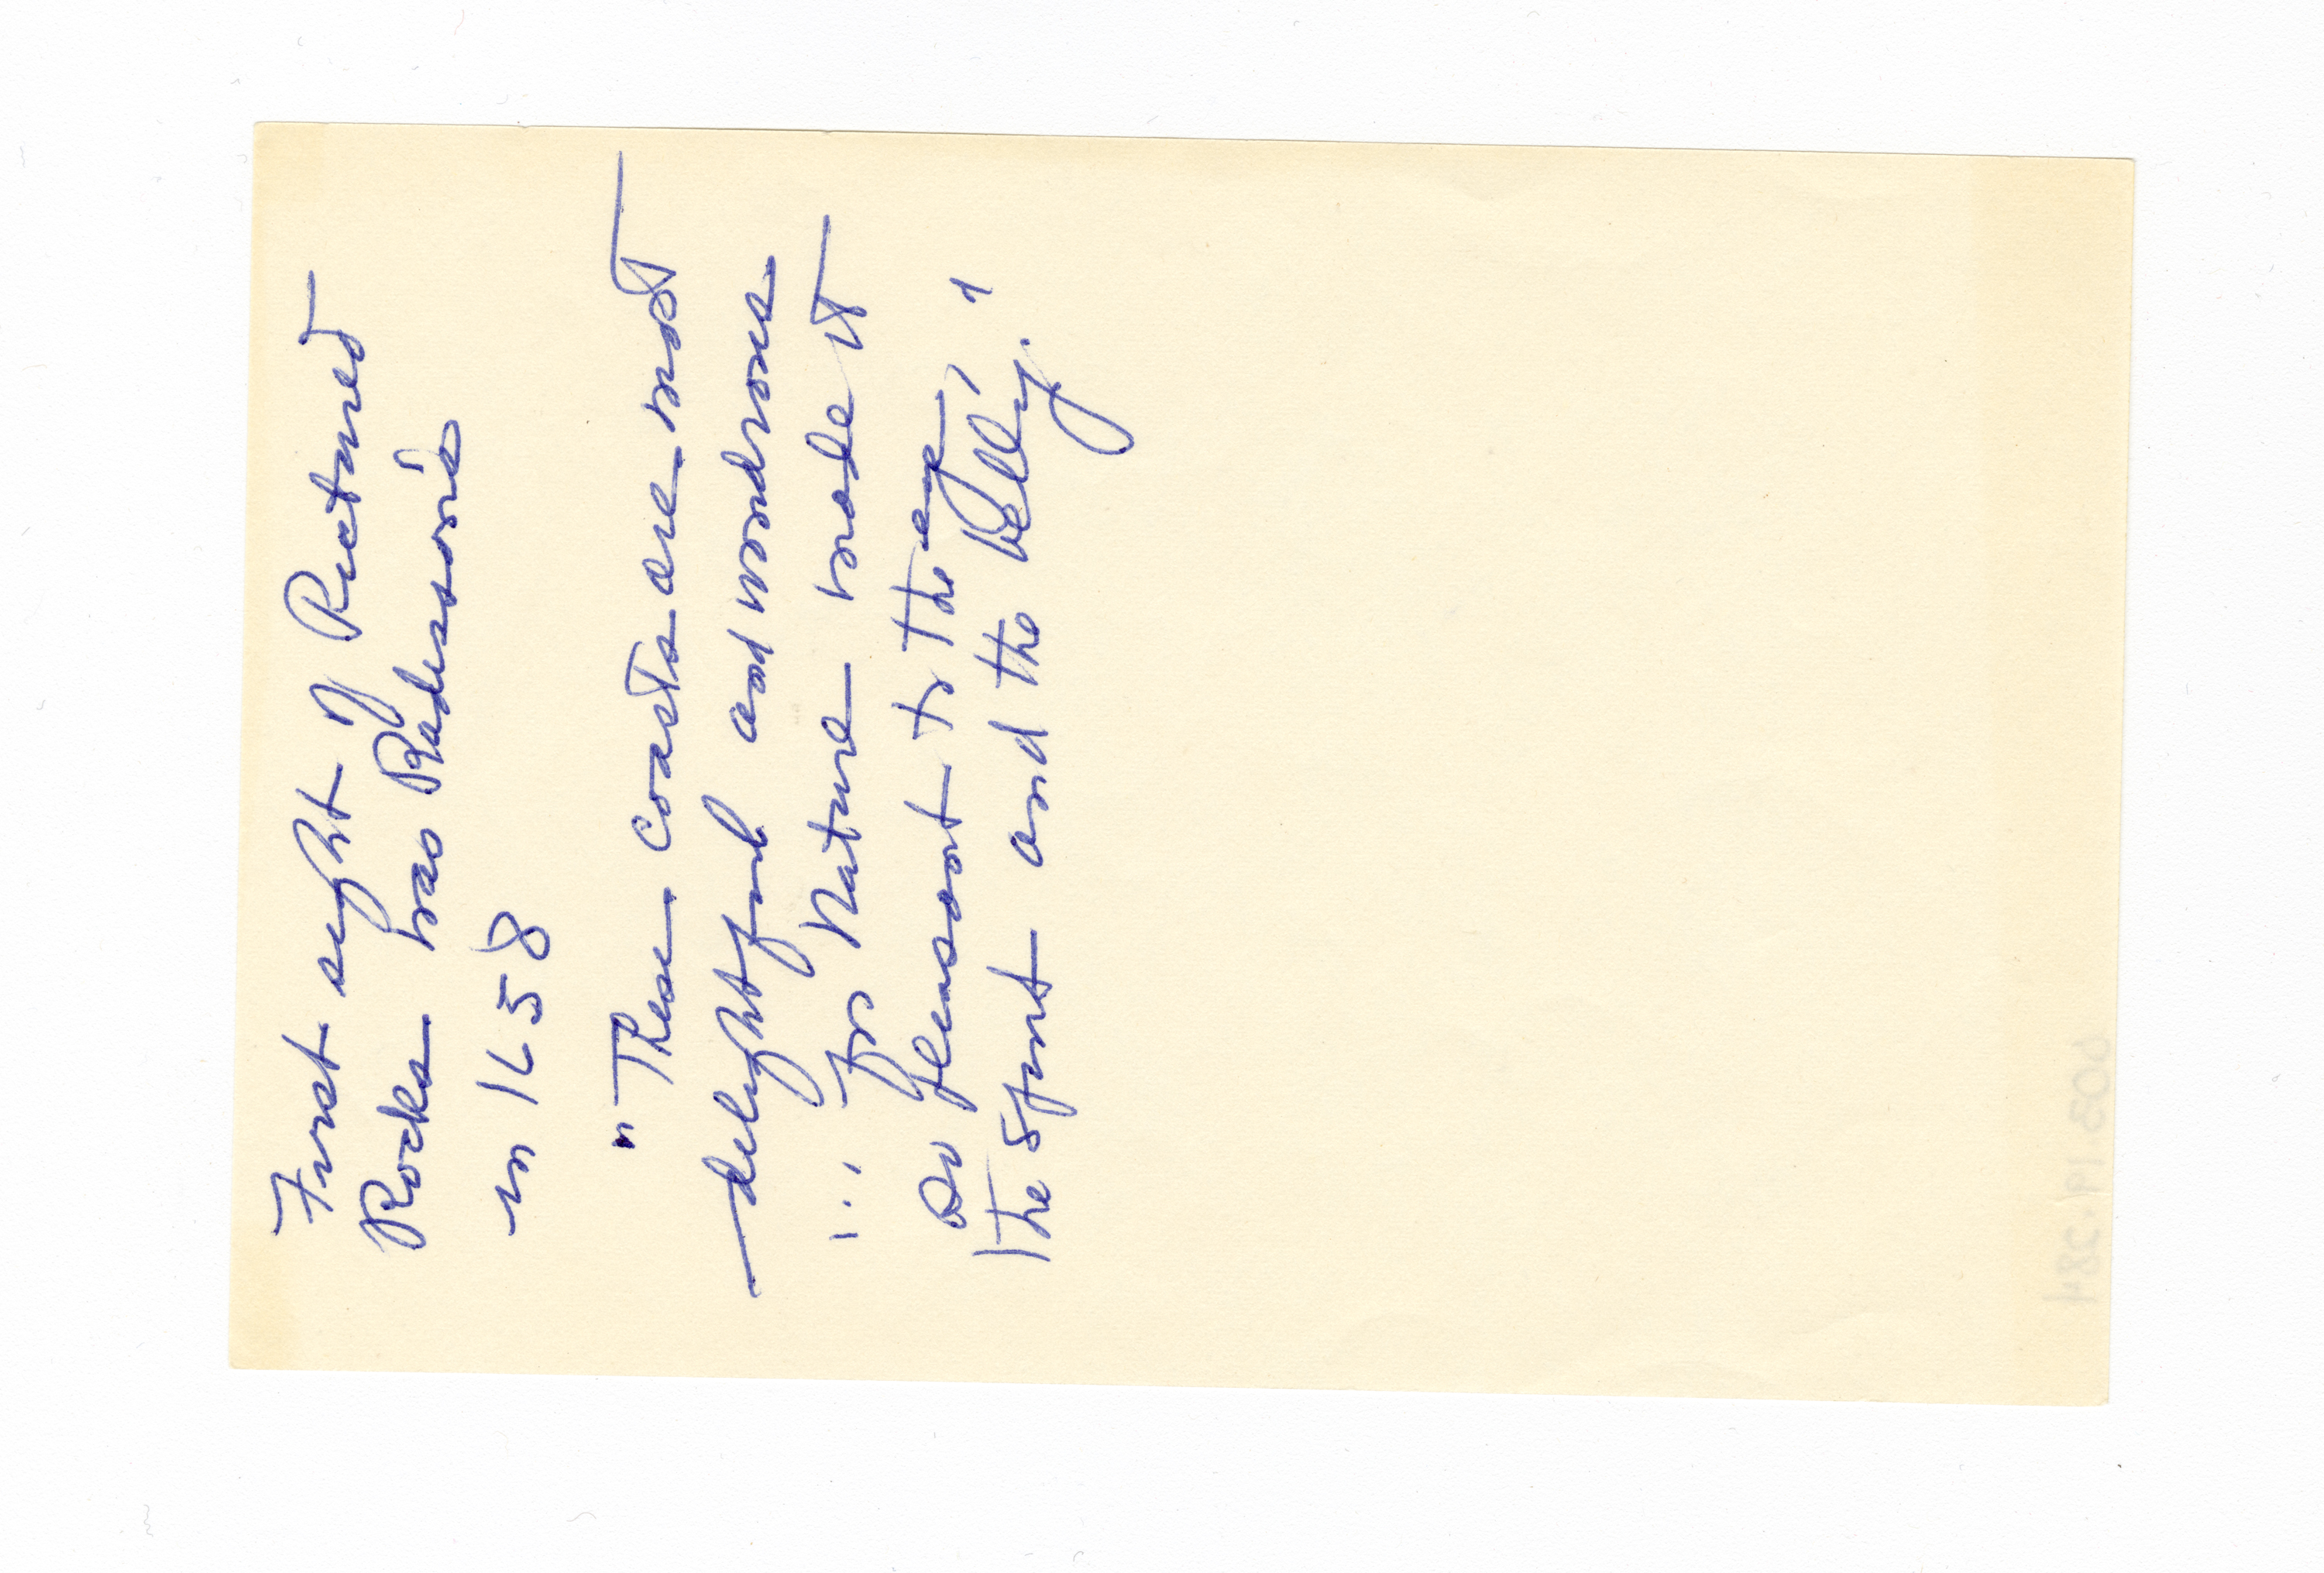 First sight of Pictured
Rocks was Radisson's
in 1658
"These coasts are most
delightful and wondrous
... for Nature made it
so pleasant to the eye,
the spirit and the belly."
003.19.284